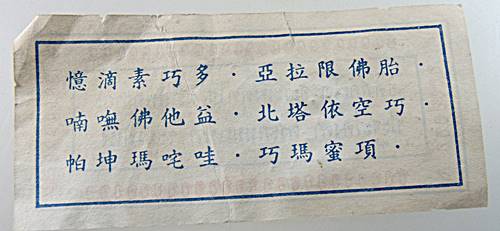 憶滴素巧多．亞拉限佛胎．
喃嘸佛他益．北塔依空巧．
帕坤瑪咤哇．巧瑪蜜項．